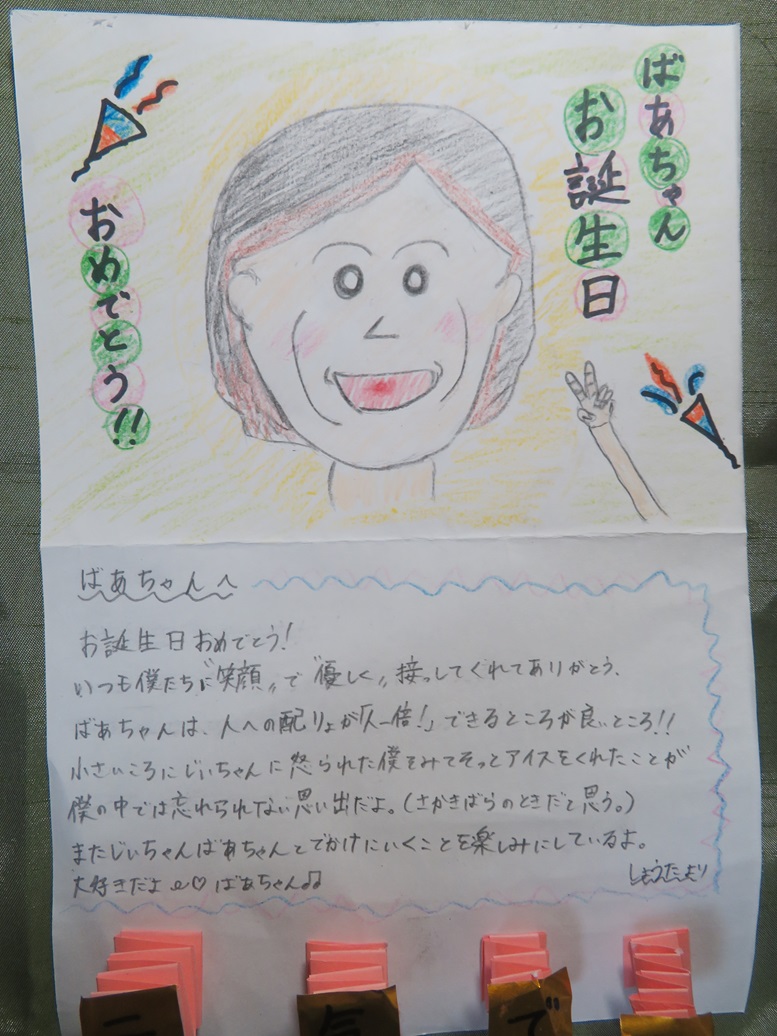 ばあちゃん
お誕生日
おめでとう!!
ばあちゃんへ
お誕生日おめでとう!
いつも僕たちに〝笑顔〟で〝優しく〟接してくれてありがとう、
ばあちゃんは、人への配りょが「人一倍!」できるところが良いところ!!
小さいころにじいちゃんに怒られた僕をみてそっとアイスをくれたことが
僕の中では忘れられない思い出だよ。(さかきばらのときだと思う。)
またじいちゃんばあちゃんとでかけにいくことを楽しみにしているよ。
大好きだよ♡ばあちゃん♫
しょうたより
気 で